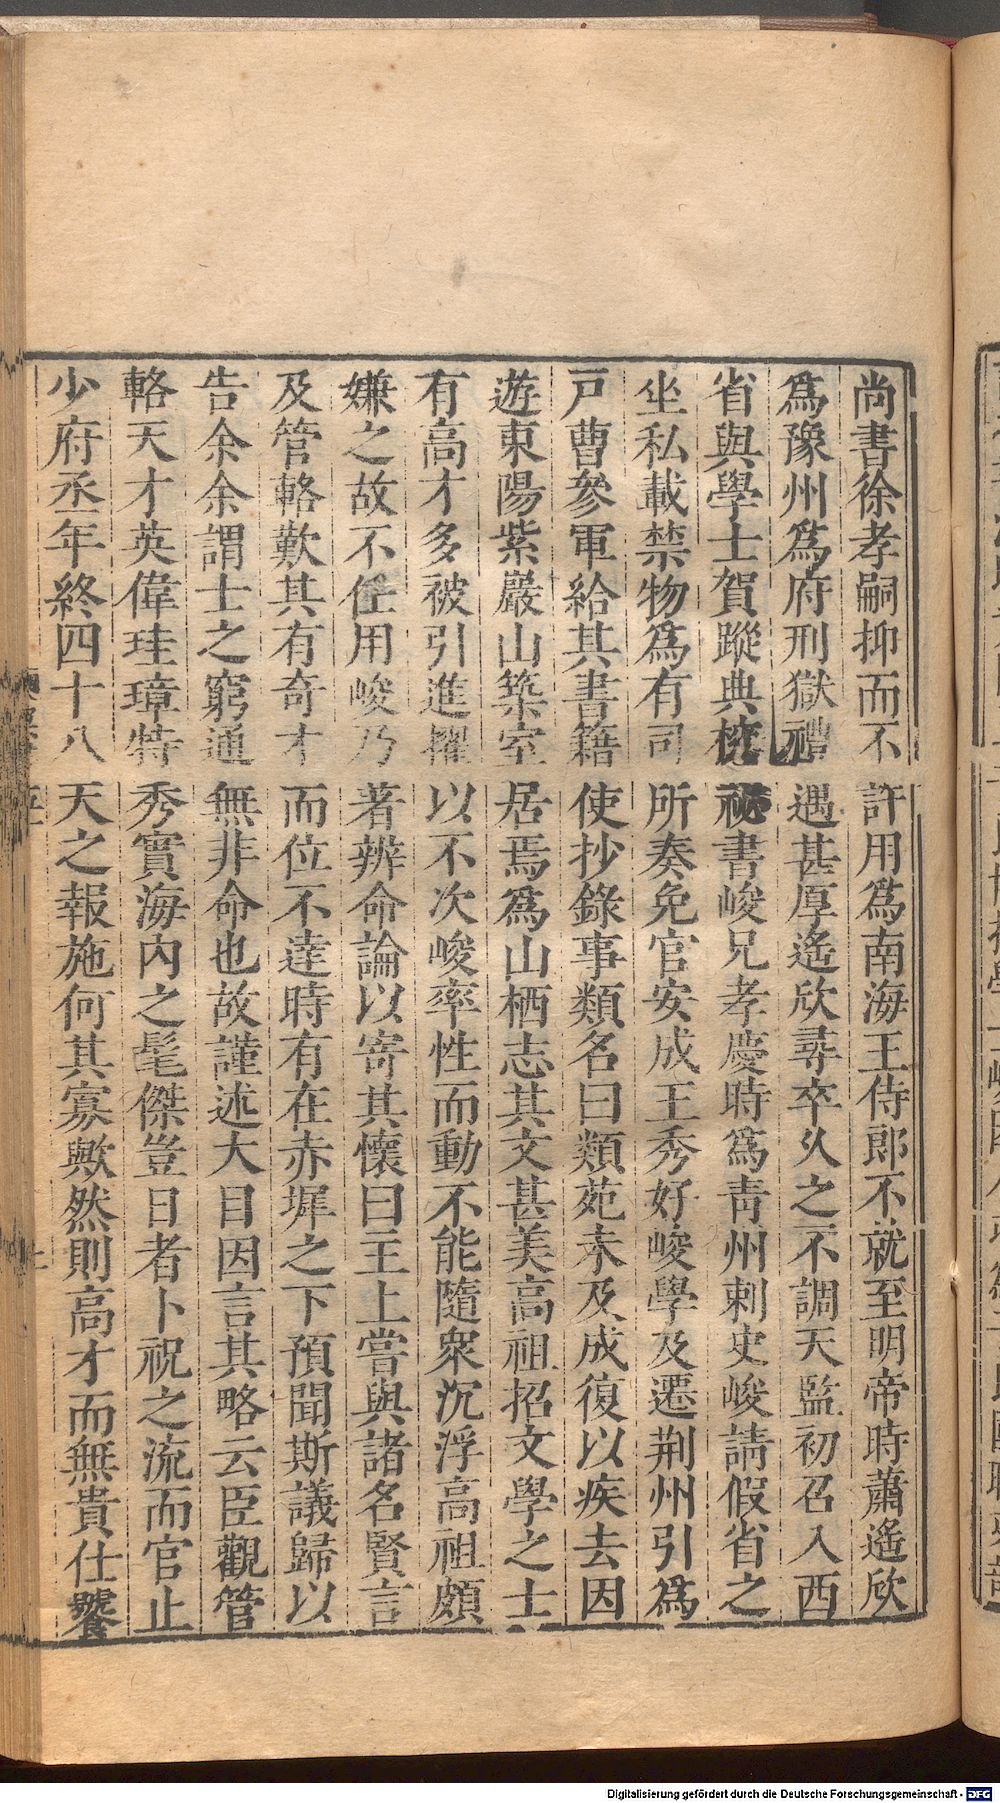 尚書徐孝嗣抑而不許用爲南海王侍郎不就至明帝時蕭遙欣
爲豫州爲府刑獄禮遇甚厚遙欣尋卒久之不調天監初召入西
省與學士賀蹤典校祕書峻兄孝慶時爲靑州刺史峻請假省之
坐私載禁物爲有司所奏免官安成王秀好峻學及遷荆州引爲
戸曹參軍給其書籍使抄錄事類名曰類苑未及成復以疾去因
遊東陽紫巖山築室居焉爲山栖志其文甚美高祖招文學之士
有高才多被引進擢以不次峻率性而動不能隨衆沉浮高祖頗
嫌之故不任用峻乃著辨命論以寄其懷曰主上嘗與諸名賢言
及管輅歎其有奇才而位不達時有在赤墀之下預聞斯議歸以
告余余謂士之窮通無非命也故謹述大目因言其略云臣觀管
輅天才英偉珪璋特秀實海內之髦傑豈日者卜祝之流而官止
少府丞年終四十八天之報施何其寡歟然則高才而無貴仕饕
Digitalisierung gefördert durch die Deutsche Forschungsgemeinschaft - DFG